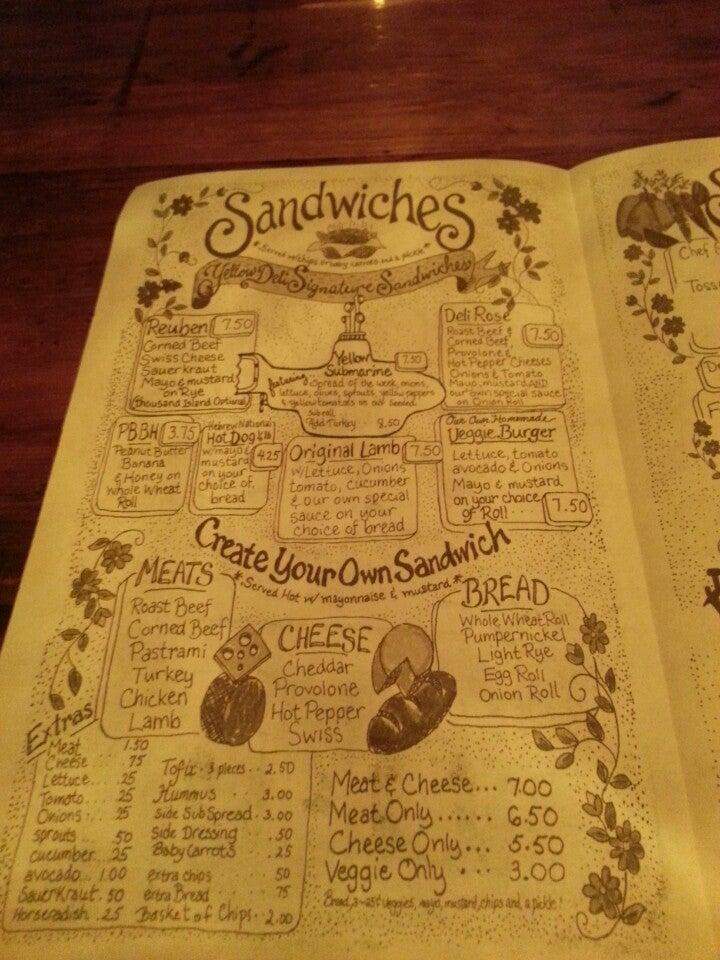 Sandwiches
*Served w/chips or baby carrots and a pickle*
Yellow Deli Signature Sandwiches
Reuben 7.50
Corned Beef
Swiss Cheese
Sauerkraut
Mayo & mustard
on Rye
Thousand Island Optional
Yellow 7.50
Submarine
featuring Spread of the week, onions,
lettuce, olives, sprouts, yellow peppers
& yellow tomatoes on our seeded
Sub roll
Add Turkey 8.50
Deli Rose
7.50
Roast Beef &
Corned Beef
Provolone &
Hot Pepper Cheeses
Onions & Tomato
Mayo, mustard AND
our own special sauce
on Onion Roll
PBBH 3.75
Peanut Butter
Banana
& Honey on
Whole Wheat
Roll
Hebrew National
Hot Dog 1/4 lb
4.25
w/mayo &
mustard
on your
choice of
bread
Original Lamb 7.50
w/Lettuce, Onions
Tomato, cucumber
& our own special
sauce on your
choice of bread
Our Own Homemade
Veggie Burger
Lettuce, tomato
avocado & Onions
Mayo & mustard
on your choice
of Roll 7.50
Create Your Own Sandwich
*Served Hot w/ mayonnaise & mustard*
MEATS
Roast Beef
Corned Beef
Pastrami
Turkey
Chicken
Lamb
CHEESE
Cheddar
Provolone
Hot Pepper
Swiss
BREAD
Whole Wheat Roll
Pumpernickel
Light Rye
Egg Roll
Onion Roll
Extras
Meat 1.50
Cheese 75
Lettuce .25
Tomato... 25
Onions... 25
sprouts... 50
cucumber.. 25
avocado... 1.00
Sauerkraut. 50
Horseradish .25
Tofu · 3 pieces.. 2.50
Hummus .. 3.00
Side Sub Spread · 3.00
Side Dressing .50
Baby Carrots .25
extra chips 50
extra Bread 75
Basket of Chips.. 2.00
Meat & Cheese... 7.00
Meat Only...... 6.50
Cheese Only... 5.50
Veggie Only ... 3.00
Bread, veggies, mayo, mustard, chips and a pickle!
S
Chef
Toss